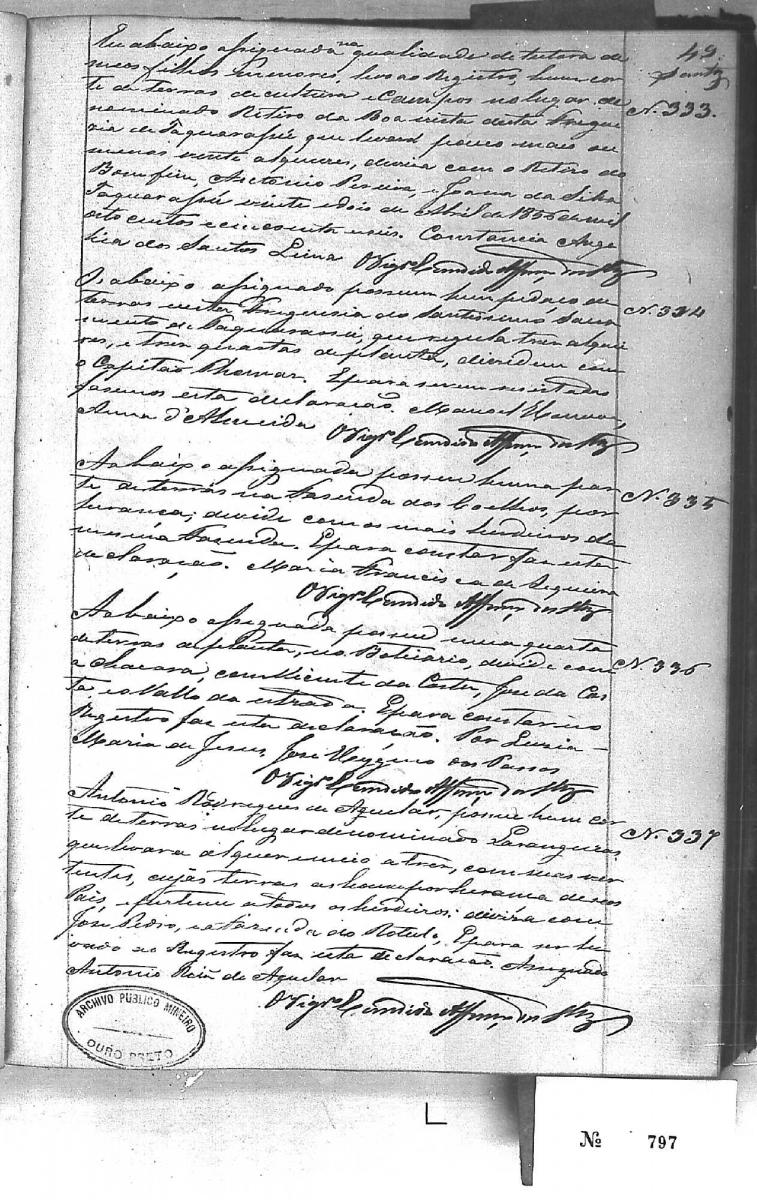 49
Eu abaixo assignada na qualidade de tutora de
meos filhos menores, levo ao Registro, hum cor
te de terras de cultura e campos no lugar de
N. 333.
nominado Retiro da Boa vista desta Fregue
zia de Taquarassú que levará pouco mais ou
menos vinte alqueres, divisa com o Retiro do
Bom fim, Antonio Pereira, e Joana da Silva
Taquarassú vinte e dois de Abril de 1856 de mil
oito centos e cincoenta e seis. Constancia Ange
lica dos Santos Lima O Vigr.o Candido Affonso dos
Os abaixo assignado possuem hum pedaço de
N. 334
terras nesta Freguesia do Santissimo Sacra
mento de Taquarassú, que regula tres alquei
res, e tres quartas de planta, dividem com
o Capitão Thomas. E para serem
fasemos esta declaração. Manoel
Anna d'Almeida O Vigr.o Candido Affonso dos
Aabaixo assignada possue huma par
N. 335
te de terras na Fazenda dos Coelhos, por
herança; divide com os mais herdeiros da
mesma Fazenda. E para constar faz esta
declaração. Maria Francisca de Siqueira
O Vigr.o Candido Affonso dos
Aabaixo assignada possue uma quarta
de terras de planta, no divide com
N. 336
a chacara, com Vicente da Costa, José da Cos
ta, e o Vallo da estrada. E para constar no
Registro faz esta declaração. Por Luzia
Maria de Jesus, José Hyggino dos Passos
O Vigr.o Candido Affonso dos
Antonio Rodrigues de Aguelar, possue hum cor
N. 337
te de terras no lugar denominado Larangeiras,
que levara alquer e meio a tres, com suas ver
tentes, cujas terras as houve por herama de seos
Pais, e pertence a todos os herdeiros; divisa com
José Pedro, e a Fazenda do Rotulo, E para ser le
vado ao Registro faz esta declaração. Assignado
Antonio Roiz de Aguelar
O Vigr.o Candido Affonso dos
ARCHIVO PUBLICO MINEIRO
OURO PRETO
Nº 797